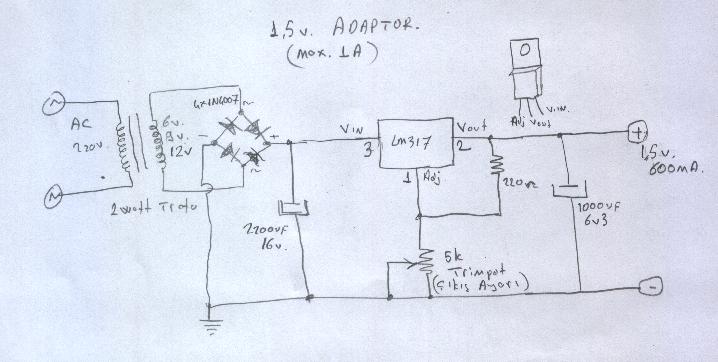 1,5v. ADAPTOR.
(max. 1A)
AC
220v.
6v.
9v.
12v
2 watt Trafo
4x1N4007
~
~
-
+
2200uF
16v.
VIN
3
LM317
Vout
2
1
Adj
220Ω
5k
Trimpot
(Çıkış Ayarı)
Adj
Vout
VIN.
1000uF
6v3
+
1,5v.
600mA.
-